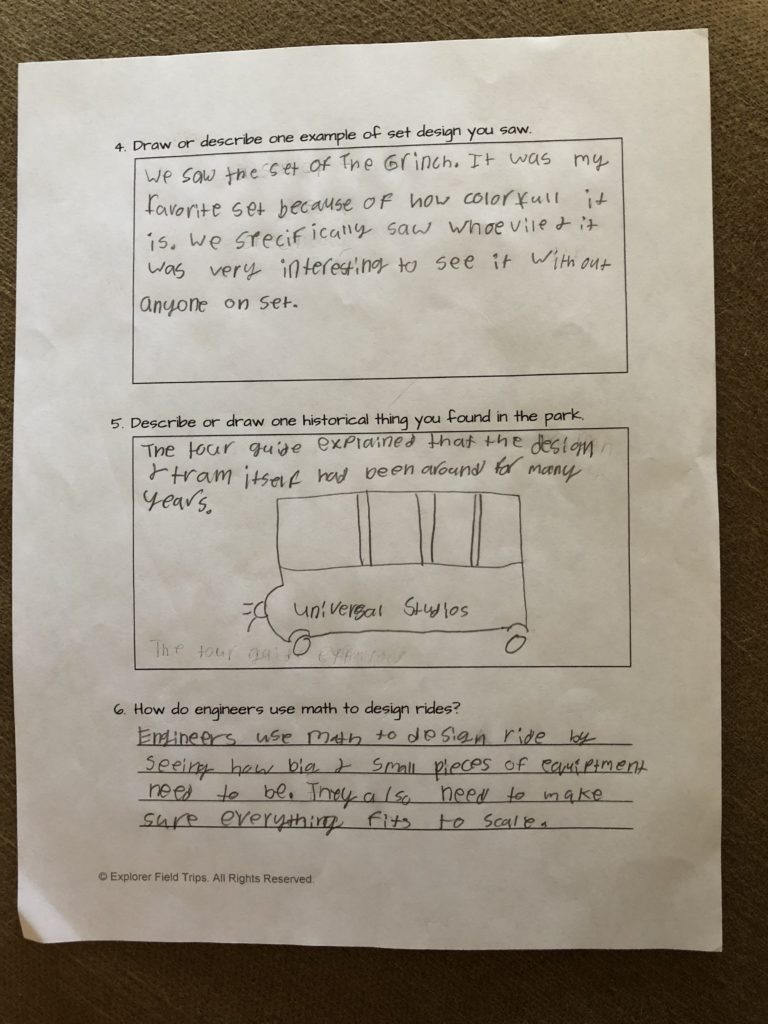 4. Draw or describe one example of set design you saw.
We saw the set of The Grinch. It was my
favorite set because of how colorfull it
is. We specifically saw whoevile & it
was very interesting to see it without
anyone on set.
5. Describe or draw one historical thing you found in the park.
The tour guide explained that the design
& tram itself had been around for many
years.
Universal Studios
The tour
6. How do engineers use math to design rides?
Engineers use math to design ride by
seeing how big & small pieces of equiptment
need to be. They also need to make
sure everything fits to scale.
© Explorer Field Trips. All Rights Reserved.